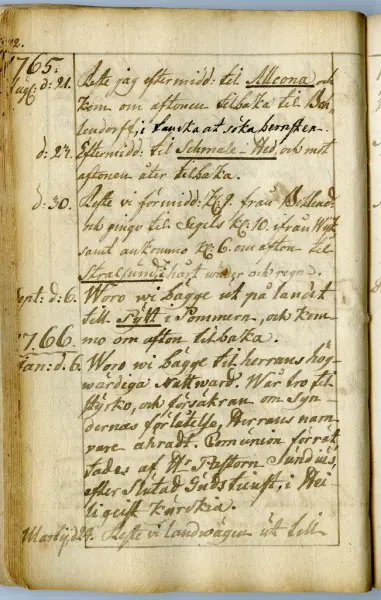 1765.
Aug: d: 21. Reste jag eftermidd: til Altona och
kom om aftonen tilbaka til Bol,
lendorff, i tanka at söka bernsten.
d: 27. Eftermidd: til Schmale-Hed, och mot
aftonen åter tilbaka.
d: 30. Reste vi förmidd: Kl: 9. från Bollend:
och gingo til Segels Kl: 10. ifrån
samt ankommo Kl: 6. om afton til
Stralsund, hårt wäder och regn.
Sept: d: 6. Woro wi bägge ut på landet
till Pütt i Pommern, och kom-
mo om afton tilbaka.
1766.
Jan: d: 6. Woro wi bägge til herrans hög-
wärdiga Nattward. Wår tro til
styrko, och försäkran om syn-
dernas förlåtelse, Herrans namn
vare ähradt. Comunion förrät,
tades af Hr Pastorn Sundius,
efter slutad Gudstienst, i Hei-
ligeist kürckia.
Martij d 24. Reste vi landwägen ut till